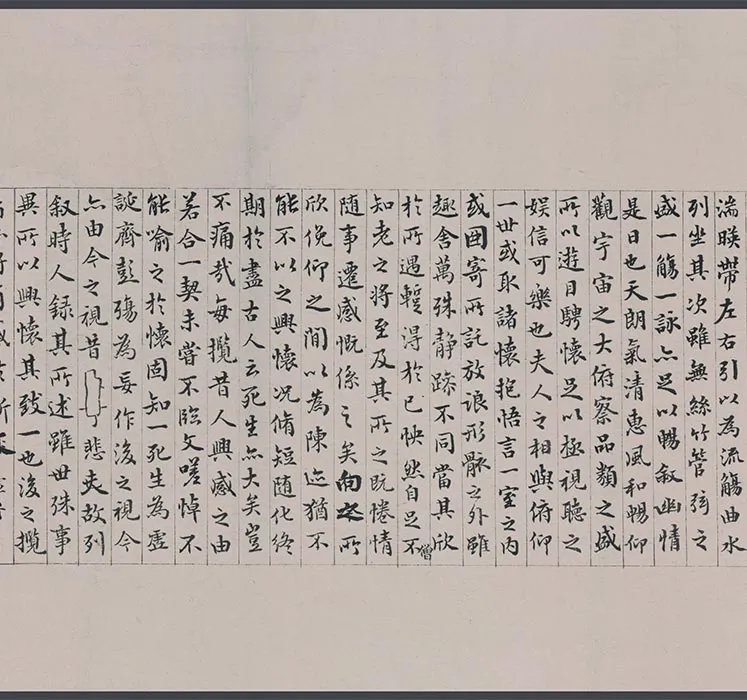 湍暎帶左右引以為流觴曲水
列坐其次雖無絲竹管弦之
盛一觴一詠亦足以暢敘幽情
是日也天朗氣清惠風和暢仰
觀宇宙之大俯察品類之盛
所以遊目騁懷足以極視聽之
娛信可樂也夫人之相與俯仰
一世或取諸懷抱悟言一室之內
或因寄所託放浪形骸之外雖
趣舍萬殊靜躁不同當其欣
於所遇蹔得於己怏然自足不
僧
知老之將至及其所之既惓情
隨事遷感慨係之矣向之所
欣俛仰之閒以為陳迹猶不
能不以之興懷況脩短隨化終
期於盡古人云死生亦大矣豈
不痛哉每攬昔人興感之由
若合一契未嘗不臨文嗟悼不
能喻之於懷固知一死生為虛
誕齊彭殤為妄作後之視今
亦由今之視昔悲夫故列
敘時人錄其所述雖世殊事
異所以興懷其致一也後之攬